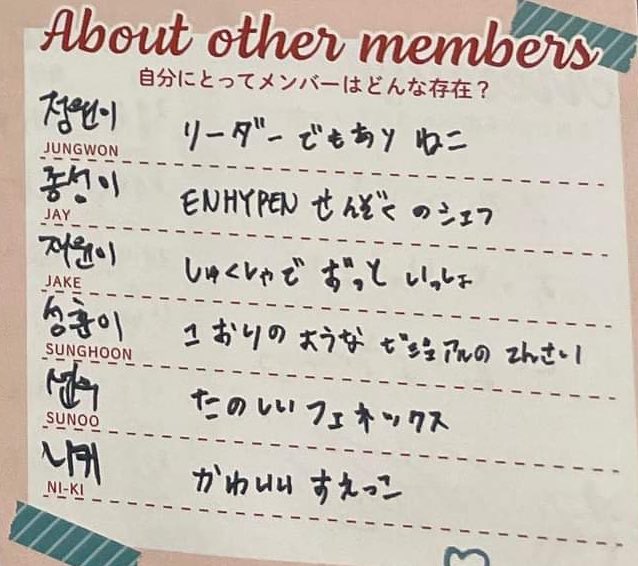 About other members
自分にとってメンバーはどんな存在？
정원이
JUNGWON
リーダーでもあり ねこ
종성이
JAY
ENHYPEN せんぞくのシェフ
재윤이
JAKE
しゅくしゃで ずっと いっしょ
성훈이
SUNGHOON
こおりの ような ビジュアルの てんさい
선우
SUNOO
たのしい フェネックス
니키
NI-KI
かわいい すえっこ